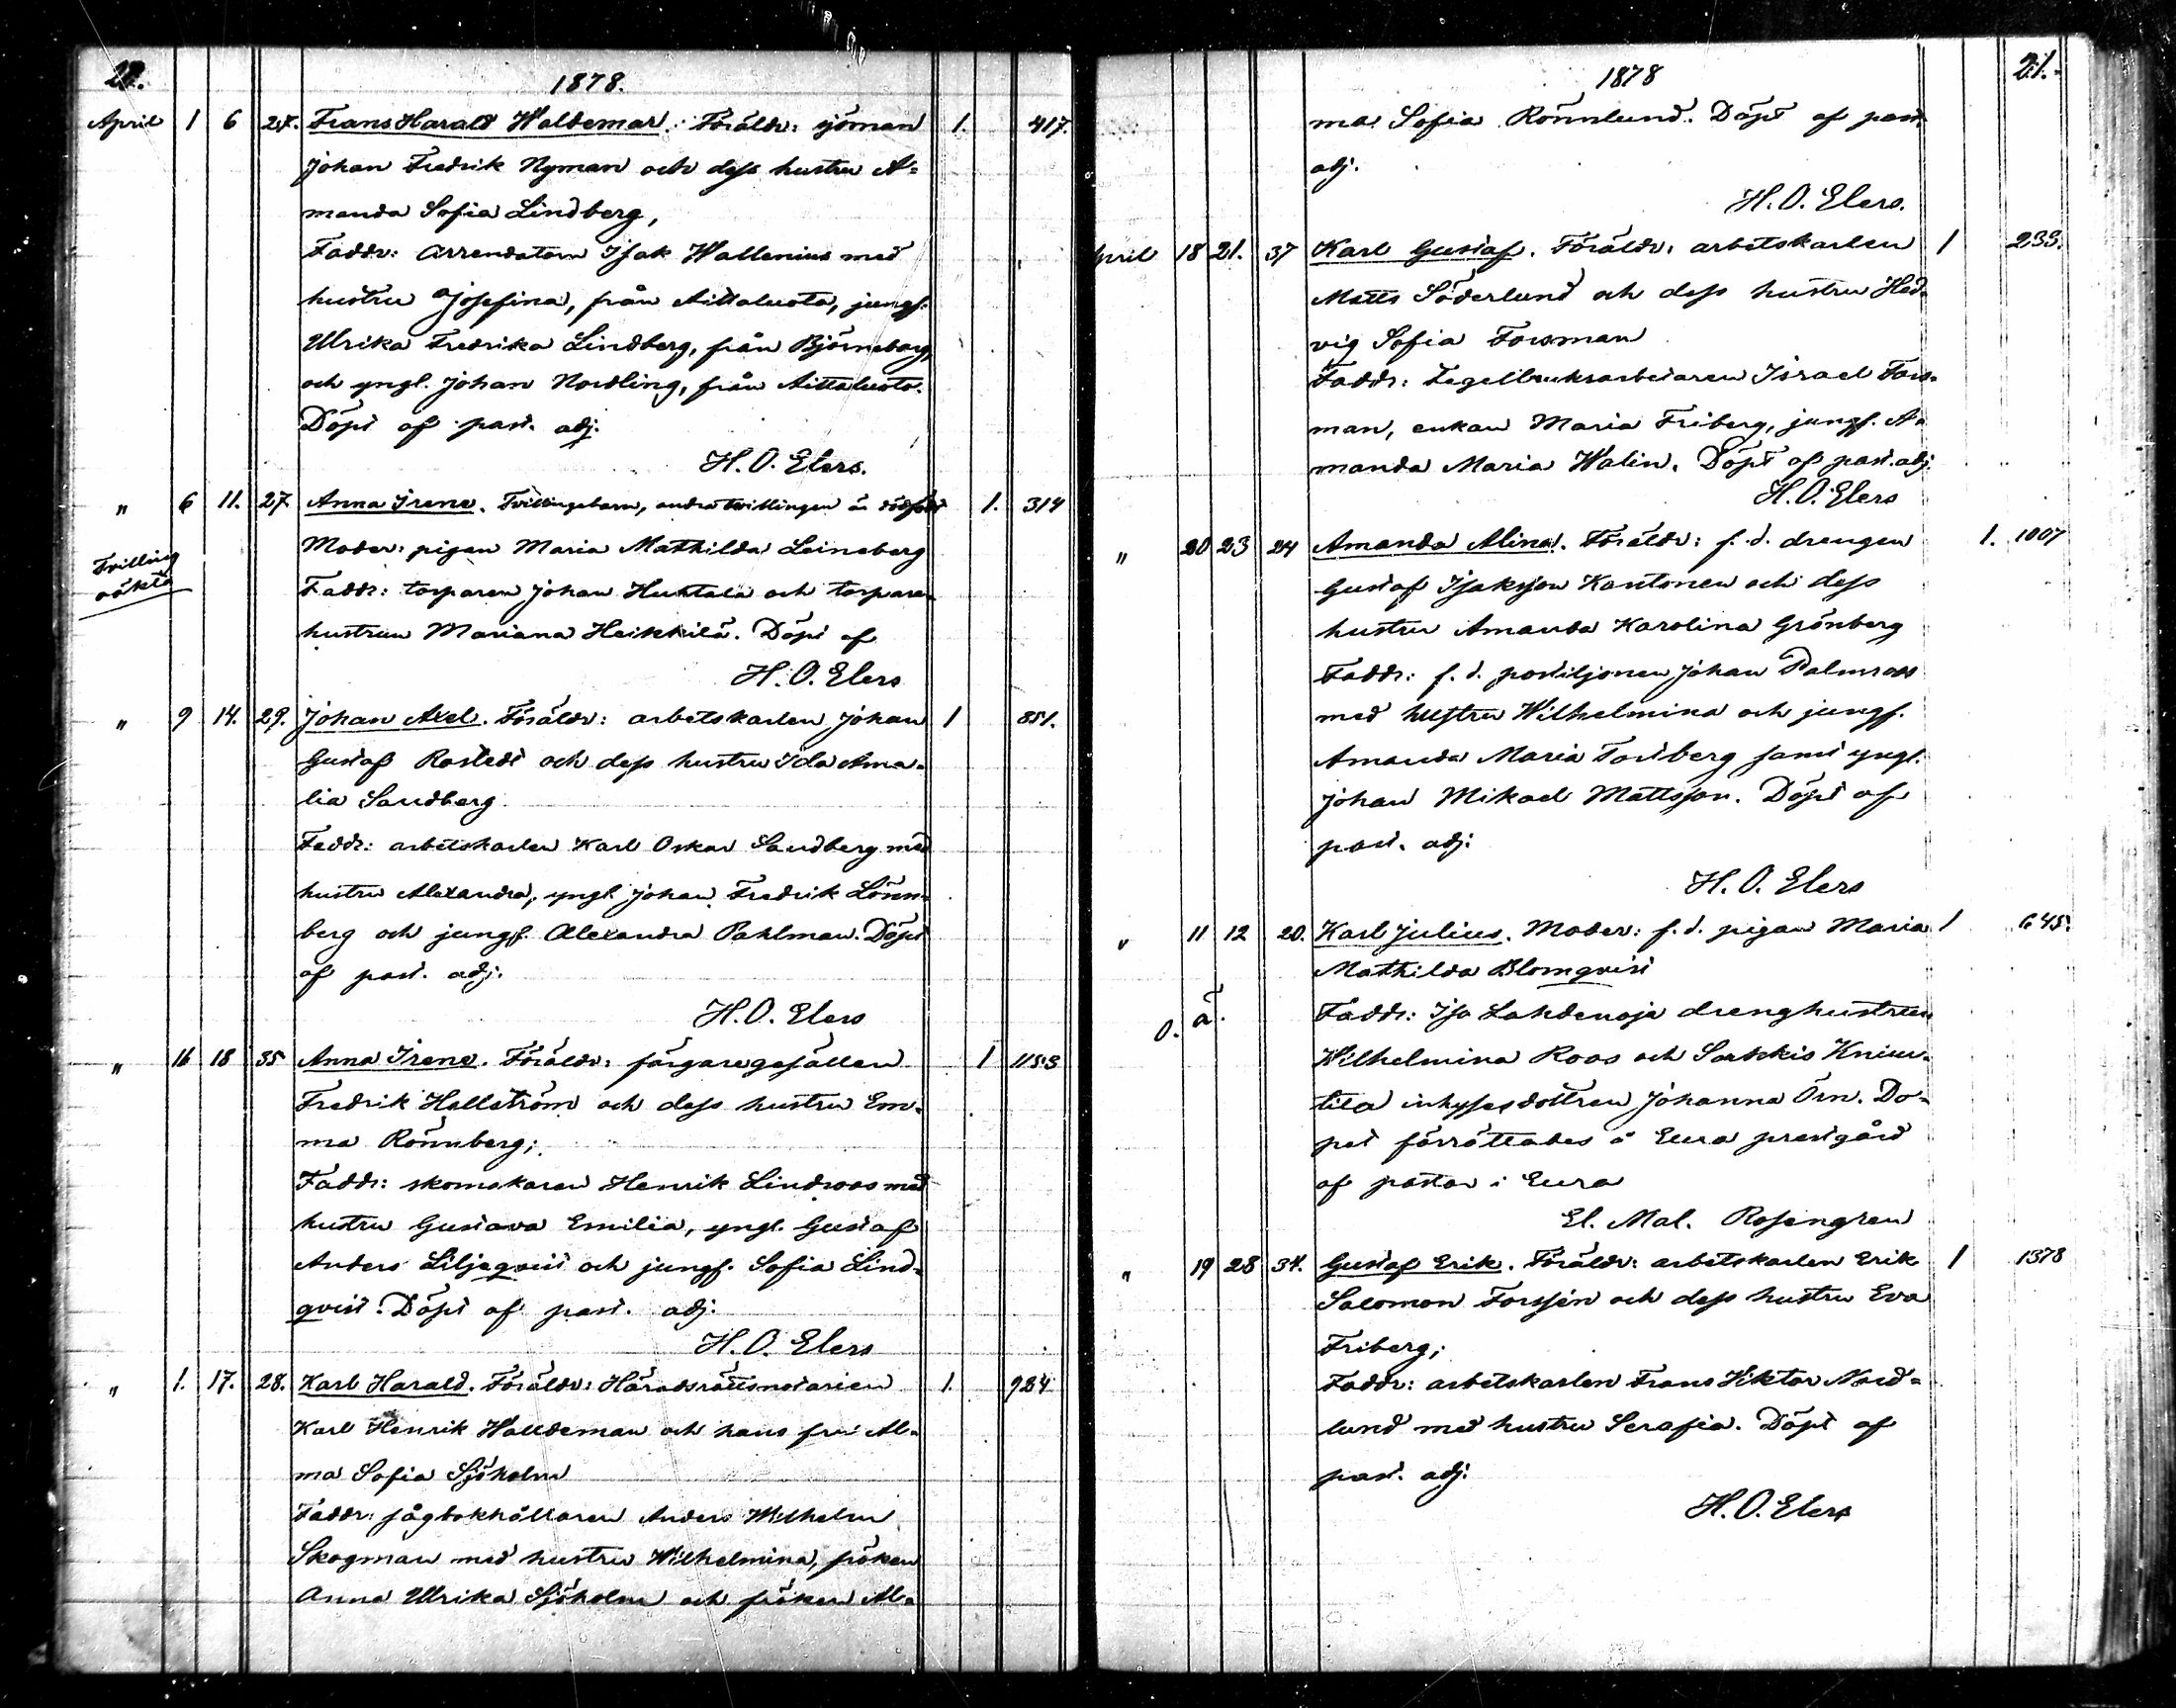 20.
1878.
April 1 6 27. Frans Harald Waldemar. Föräldr: sjöman 1. 417.
Johan Fredrik Nyman och dess hustru A=
manda Sofia Lindberg,
Faddr: Arrendatorn Isak Wallenius med
hustru Josefina, från Aittaluoto, jungf.
Ulrika Fredrika Lindberg, från Björneborg,
och yngl. Johan Nordling, från Aittaluoto.
Döpt af past. adj.
H. O. Elers.
" 6 11. 27. Anna Irene. Tvillingebarn, andra tvillingen är dödfödt 1. 314
Moder: pigan Maria Mathilda Leineberg
Tvilling
oäkta
Faddr: torparen Johan Huhtala och torpare
hustrun Mariana Heikkilä. Döpt af
H. O. Elers
" 9 14. 29. Johan Axel. Föräldr: arbetskarlen Johan 1 851.
Gustaf Rostedt och dess hustru Ida Ama=
lia Sandberg
Faddr: arbetskarlen Karl Oskar Sandberg med
hustru Alexandra, yngl. Johan Fredrik Lönn=
berg och jungf. Alexandra Pahlman. Döpt
af past. adj.
H. O. Elers
" 16 18 35 Anna Irene. Föräldr: färgaregesällen 1 1153
Fredrik Hellström och dess hustru Em=
ma Rönnberg;
Faddr: skomakaren Henrik Lindroos med
hustru Gustava Emilia, yngl. Gustaf
Anders Liljeqvist och jungf. Sofia Lind=
qvist. Döpt af past. adj.
H. O. Elers
" 1. 17. 28. Karl Harald. Föräldr: Häradsrättsnotarien 1. 984
Karl Henrik Walldeman och hans fru Al=
ma Sofia Sjöholm
Faddr: sågbokhållaren Anders Wilhelm
Skogman med hustru Wilhelmina, fröken
Anna Ulrika Sjöholm och fröken Al=
1878
21.
ma Sofia Rönnlund. Döpt af past.
adj.
H. O. Elers.
April 18 21. 37 Karl Gustaf. Föräldr: arbetskarlen 1 233.
Matts Söderlund och dess hustru Hed=
vig Sofia Forsman
Faddr: Tegelbruksarbetaren Israel Fors=
man, enkan Maria Friberg, jungf. A=
manda Maria Walin. Döpt af past. adj.
H. O. Elers
" 20 23 24 Amanda Alina. Föräldr: f. d. drengen 1. 1007
Gustaf Isaksson Kantonen och dess
hustru Amanda Karolina Grönberg
Faddr: f. d. postiljonen Johan Palmroos
med hustru Wilhelmina och jungf.
Amanda Maria Forsberg samt yngl.
Johan Mikael Mattsson. Döpt af
past. adj.
H. O. Elers
" 11 12 20. Karl Julius. Moder: f. d. pigan Maria 1 645.
Mathilda Blomqvist
o. ä.
Faddr: Iso Lahdenoja drenghustrun
Wilhelmina Roos och Sorkkis Knuu=
tila inhysesdottren Johanna Örn. Do=
pet förrättades å Eura prestgård
af pastor i Eura
El. Mal. Rosengren
" 19 28 34. Gustaf Erik. Föräldr: arbetskarlen Erik 1 1378
Salomon Forssén och dess hustru Eva
Friberg;
Faddr: arbetskarlen Frans Viktor Nord=
lund med hustru Serafia. Döpt af
past. adj.
H. O. Elers